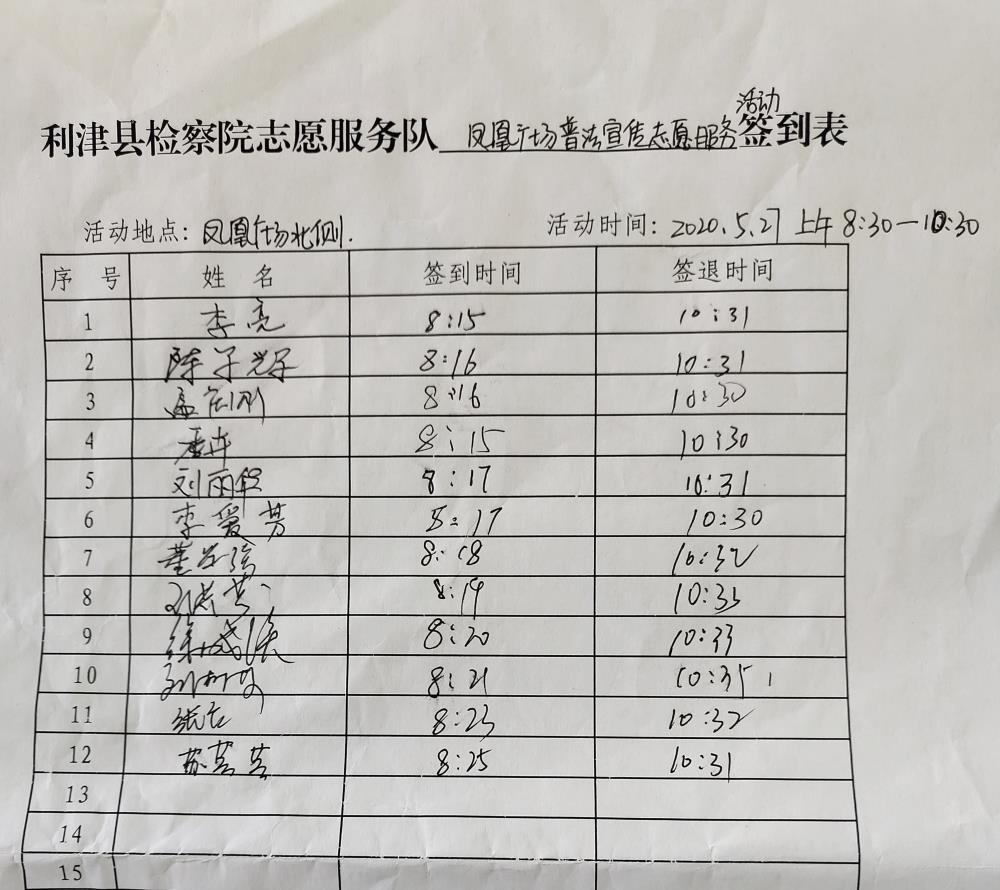 活动
利津县检察院志愿服务队 凤凰广场普法宣传志愿服务 签到表
活动地点：凤凰广场北侧. 活动时间：2020.5.27 上午 8:30—10:30
序 号 姓 名 签到时间 签退时间
1 李亮 8:15 10:31
2 陈子辉 8:16 10:31
3 8:16 10:30
4 8:15 10:30
5 8:17 10:31
6 李爱芳 8:17 10:30
7 8:18 10:32
8 8:19 10:33
9 8:20 10:33
10 8:21 10:35
11 8:23 10:32
12 8:25 10:31
13
14
15